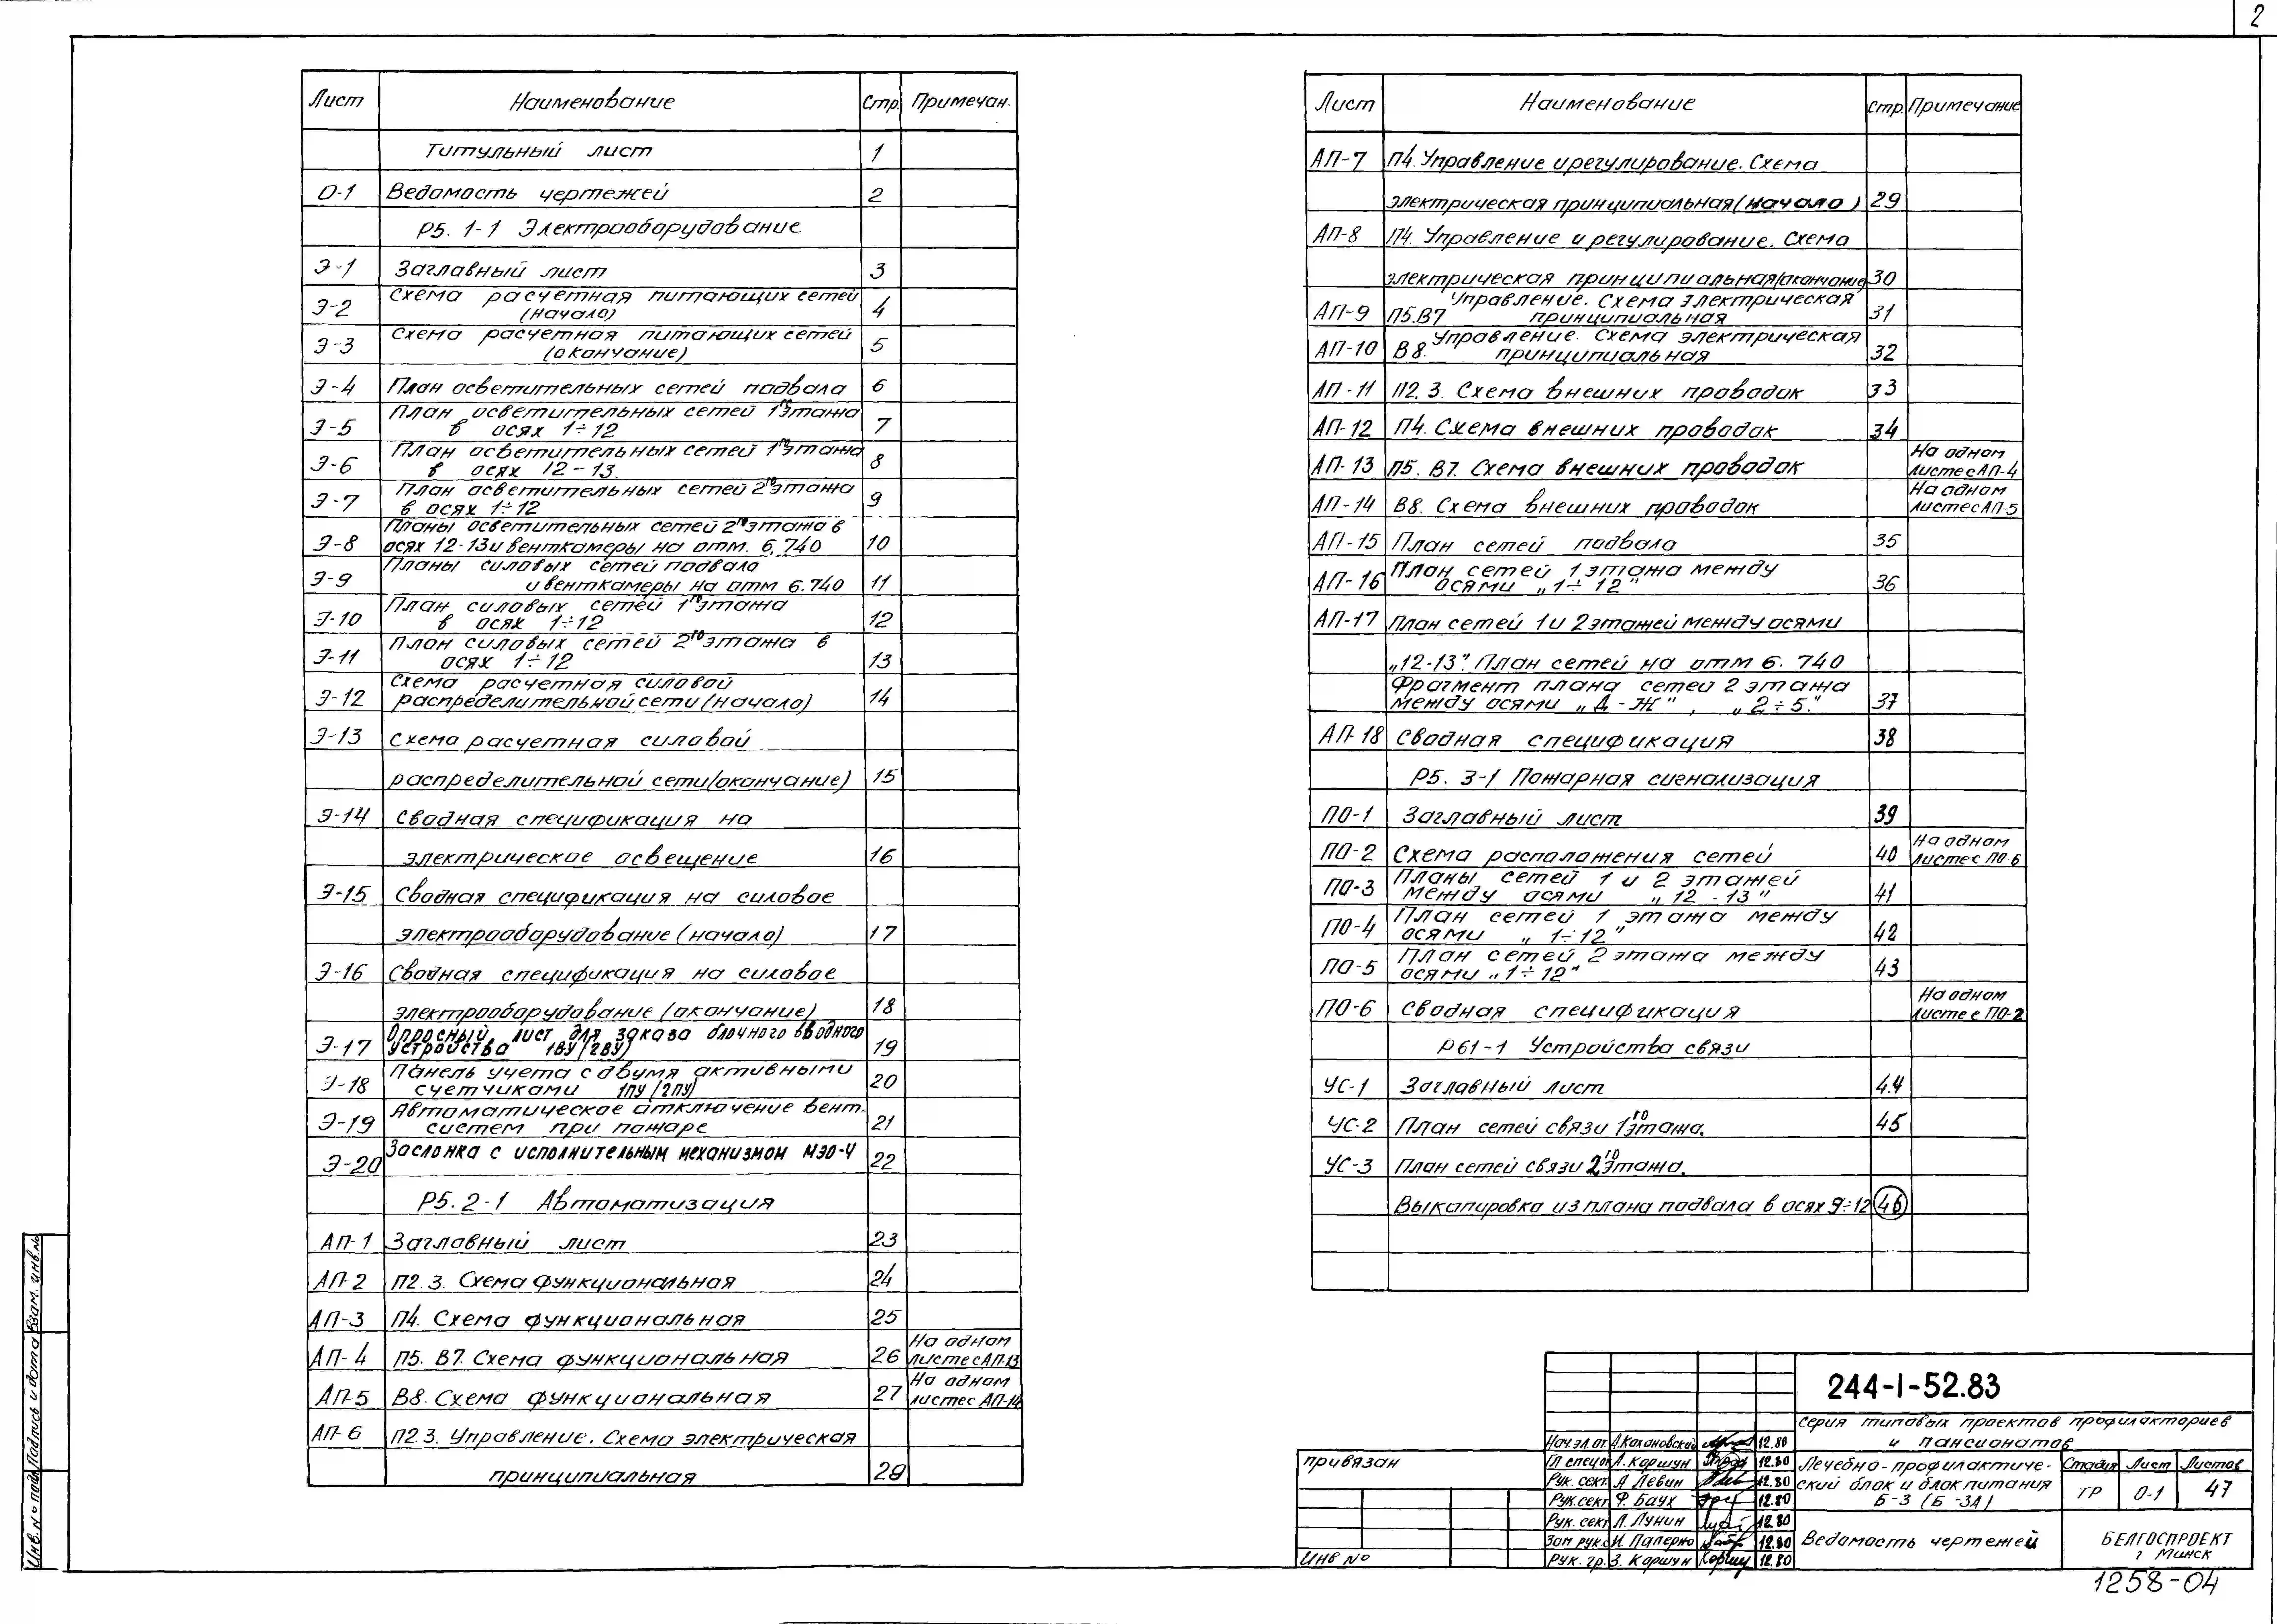 2
Лист Наименование Стр. Примечан.
Титульный лист 1
О-1 Ведомость чертежей 2
Р5. 1-1 Электрооборудование
Э-1 Заглавный лист 3
Э-2 Схема расчетная питающих сетей
(начало) 4
Э-3 Схема расчетная питающих сетей
(окончание) 5
Э-4 План осветительных сетей подвала 6
Э-5 План осветительных сетей 1го этажа
в осях 1÷12 7
Э-6 План осветительных сетей 1го этажа
в осях 12-13. 8
Э-7 План осветительных сетей 2го этажа
в осях 1÷12 9
Э-8 Планы осветительных сетей 2го этажа в
осях 12-13 и венткамеры на отм. 6.740 10
Э-9 Планы силовых сетей подвала
и венткамеры на отм 6.740 11
Э-10 План силовых сетей 1го этажа
в осях 1÷12 12
Э-11 План силовых сетей 2го этажа в
осях 1÷12 13
Э-12 Схема расчетная силовой
распределительной сети (начало) 14
Э-13 Схема расчетная силовой
распределительной сети (окончание) 15
Э-14 Сводная спецификация на
электрическое освещение 16
Э-15 Сводная спецификация на силовое
электрооборудование (начало) 17
Э-16 Сводная спецификация на силовое
электрооборудование (окончание) 18
Э-17 Опросный лист для заказа блочного вводного
устройства 1ВУ (2ВУ) 19
Э-18 Панель учета с двумя активными
счетчиками 1ПУ (2ПУ) 20
Э-19 Автоматическое отключение вент.
систем при пожаре 21
Э-20 Заслонка с исполнительным механизмом МЭО-4 22
Р5. 2-1 Автоматизация
АП-1 Заглавный лист 23
АП-2 П2.3. Схема функциональная 24
АП-3 П4. Схема функциональная 25
АП-4 П5. В7. Схема функциональная 26 На одном
листе с АП-13
АП-5 В8. Схема функциональная 27 На одном
листе с АП-14
АП-6 П2.3. Управление. Схема электрическая
принципиальная 28
Лист Наименование Стр. Примечание
АП-7 П4. Управление и регулирование. Схема
электрическая принципиальная (начало) 29
АП-8 П4. Управление и регулирование. Схема
электрическая принципиальная (окончание) 30
АП-9 П5.В7 Управление. Схема электрическая
принципиальная 31
АП-10 В8. Управление. Схема электрическая
принципиальная 32
АП-11 П2.3. Схема внешних проводок 33
АП-12 П4. Схема внешних проводок 34
АП-13 П5. В7. Схема внешних проводок На одном
листе с АП-4
АП-14 В8. Схема внешних проводок На одном
листе с АП-5
АП-15 План сетей подвала 35
АП-16 План сетей 1 этажа между
осями „1÷12" 36
АП-17 План сетей 1 и 2 этажей между осями
„12-13". План сетей на отм 6.740
Фрагмент плана сетей 2 этажа
между осями „Д-Ж", „2÷5." 37
АП-18 Сводная спецификация 38
Р5. 3-1 Пожарная сигнализация
ПО-1 Заглавный лист 39
ПО-2 Схема расположения сетей 40 На одном
листе с ПО-6
ПО-3 Планы сетей 1 и 2 этажей
между осями „12-13" 41
ПО-4 План сетей 1 этажа между
осями „1÷12" 42
ПО-5 План сетей 2 этажа между
осями „1÷12" 43
ПО-6 Сводная спецификация На одном
листе с ПО-2
Р61-1 Устройства связи
УС-1 Заглавный лист 44
УС-2 План сетей связи 1го этажа. 45
УС-3 План сетей связи 2го этажа.
Выкопировка из плана подвала в осях 9÷12 46
244-1-52.83
серия типовых проектов профилакториев
и пансионатов
Нач.эл.от. А.Кахановский 12.80
Гл спецот А. Коршун 12.80
Рук. сект. Л Левин 12.80
Рук.сект Ф. Баух 12.80
Рук. сект Л. Лунин 12.80
Зам рук.с И. Паперно 12.80
Рук. гр. З. Коршун 12.80
привязан
Инв №
Лечебно-профилактиче-
ский блок и блок питания
Б-3 (Б-3А)
Стадия Лист Листов
ТР О-1 47
Ведомость чертежей
БЕЛГОСПРОЕКТ
г Минск
1258-04
Взам. инв.№
Подпись и дата
Инв.№ подл